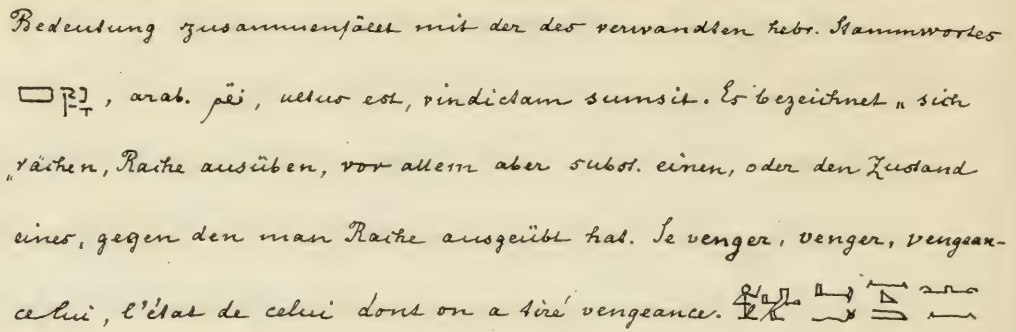 Bedeutung zusammenfällt mit der des verwandten hebr. Stammwortes
נָקַם, arab. نقم, ultus est, vindictam sumsit. Es bezeichnet „sich
„rächen, Rache ausüben, vor allem aber subst. einen, oder den Zustand
eines, gegen den man Rache ausgeübt hat. Se venger, venger, vengean-
ce lui, l'état de celui dont on a tiré vengeance.